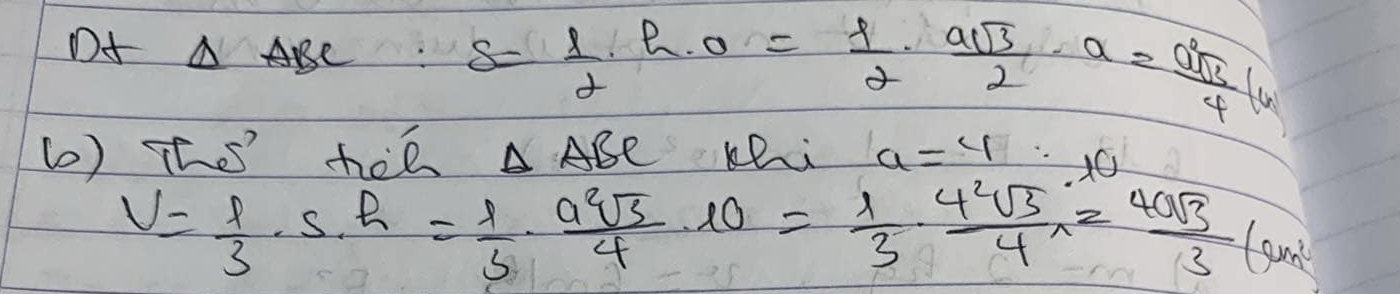 Dt Δ ABC : S = 1/2 . h . a = 1/2 . a√3/2 . a = a²√3/4
b) Thể tích Δ ABC khi a = 4 :
V = 1/3 . S . h = 1/3 . a²√3/4 . 10 = 1/3 . 4²√3/4 . 10 = 40√3/3 (cm³